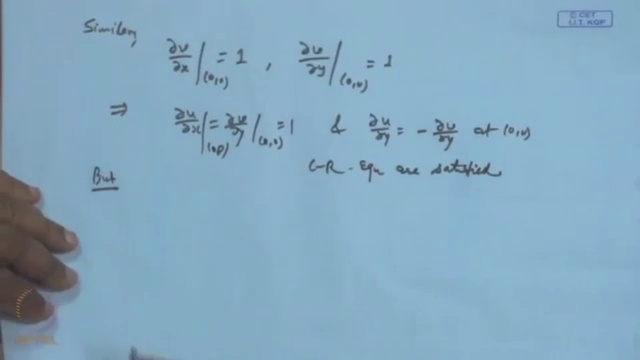 © CET
I.I.T. KGP
Similarly
∂v/∂x|(0,0) = 1 , ∂v/∂y|(0,0) = 1
⇒ ∂u/∂x|(0,0) = ∂v/∂y|(0,0) = 1 & ∂u/∂y = - ∂v/∂y at (0,0)
C-R - Equ are satisfied.
But